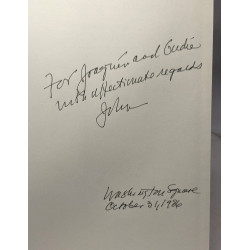 For Joaquín and Cudie
with affectionate regards
John
Washington Square
October 31, 1986